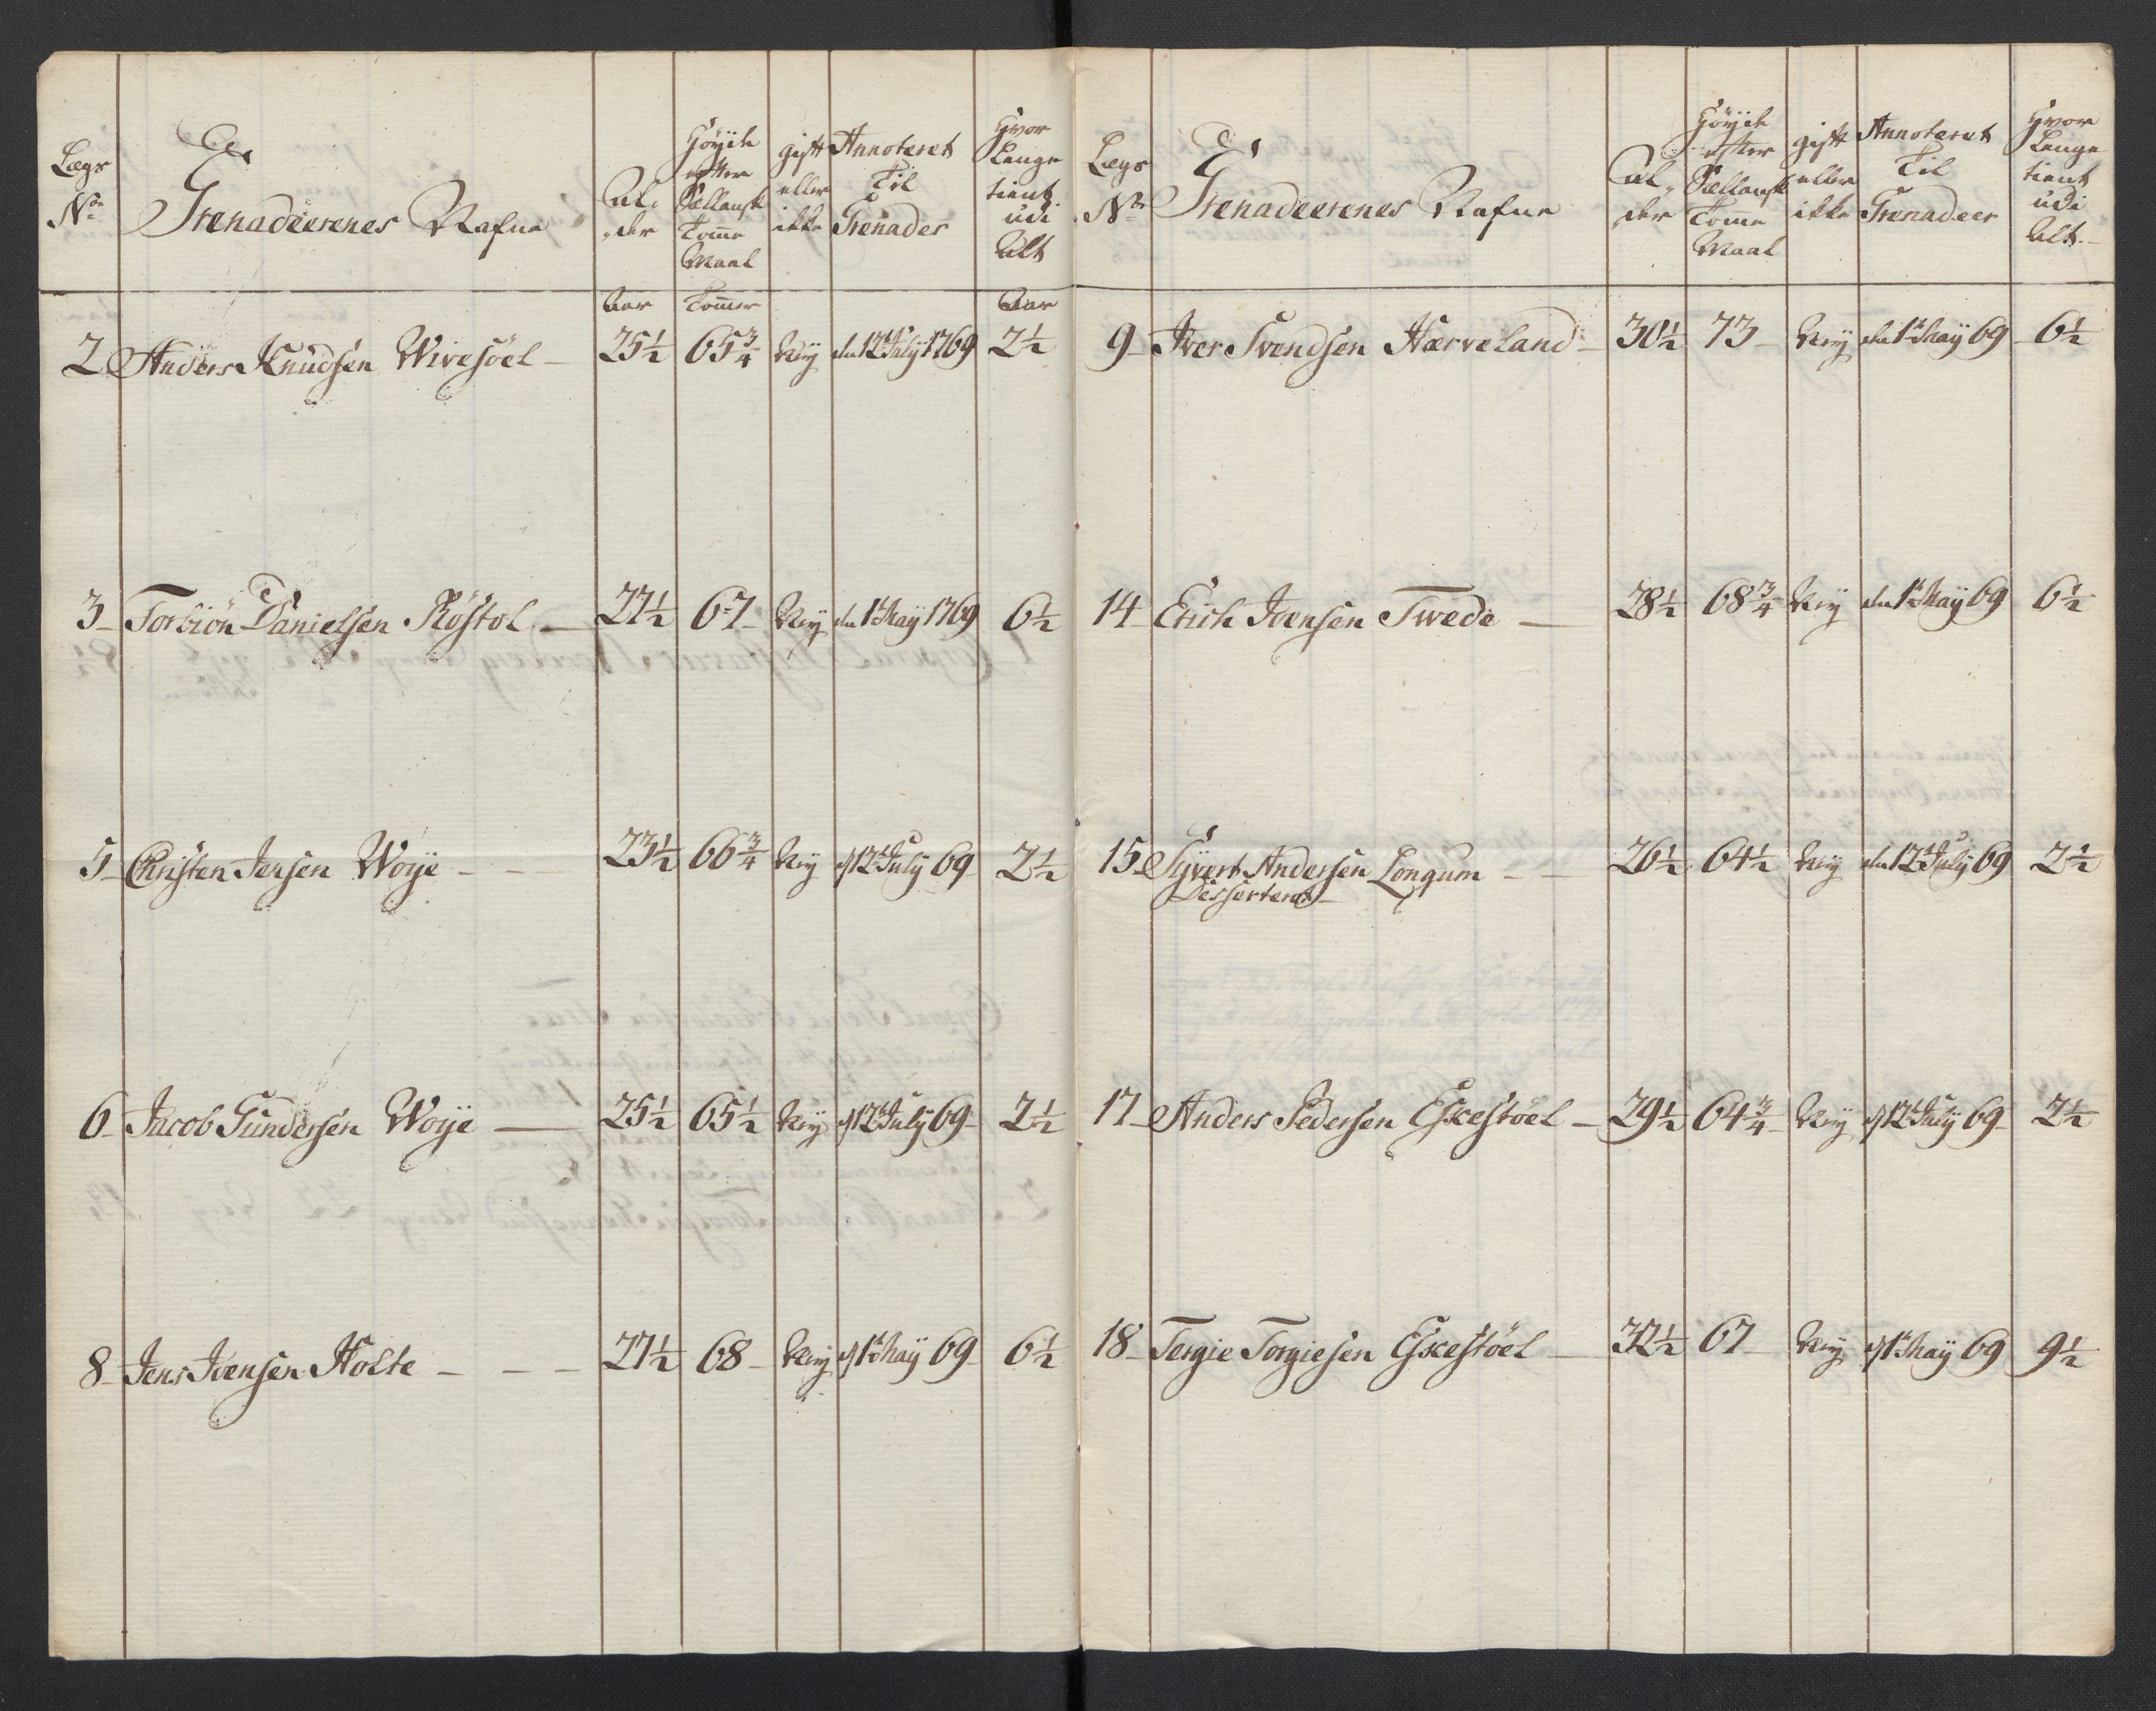 Lægs
No
Grenadeerenes Nafne
Al,
der
Höyde
efter
Siellansk
Tome
Maal
gift
eller
ikke
Annoteret
Til
Grenader
Hvor
Længe
tient
udi
Alt
Aar Tommer Aar
2 Anders Knudsen Wivestöel 25½ 65¾ Ney den 12t July 1769 2½
3 Torbiön Danielsen Röstöl 27½ 67 Ney den 1t May 1769 6½
5 Christen Jensen Woye 23½ 66¾ Ney d 12t July 69 2½
6 Jacob Gundersen Woye 25½ 65½ Ney d 12t July 69 2½
8 Jens Joensen Holte 27½ 68 Ney d 1t May 69 6½
Lægs
No
Grenadeerenes Nafne
Al,
der
Höyde
efter
Siellansk
Tome
Maal
gift
eller
ikke
Annoteret
Til
Grenadeer
Hvor
Længe
tient
udi
Alt
9 Iver Svendsen Hærveland 30½ 73 Ney den 1t May 69 6½
14 Erich Joensen Twede 28½ 68¾ Ney den 1t May 69 6½
15 Syvert Andersen Longum 26½ 64½ Ney den 12t July 69 2½
Desserteret
17 Anders Pedersen Eskestöel 29½ 64¾ Ney d 12t July 69 2½
18 Tergie Torgiesen Eskestöel 32½ 67 Ney d 1t May 69 9½